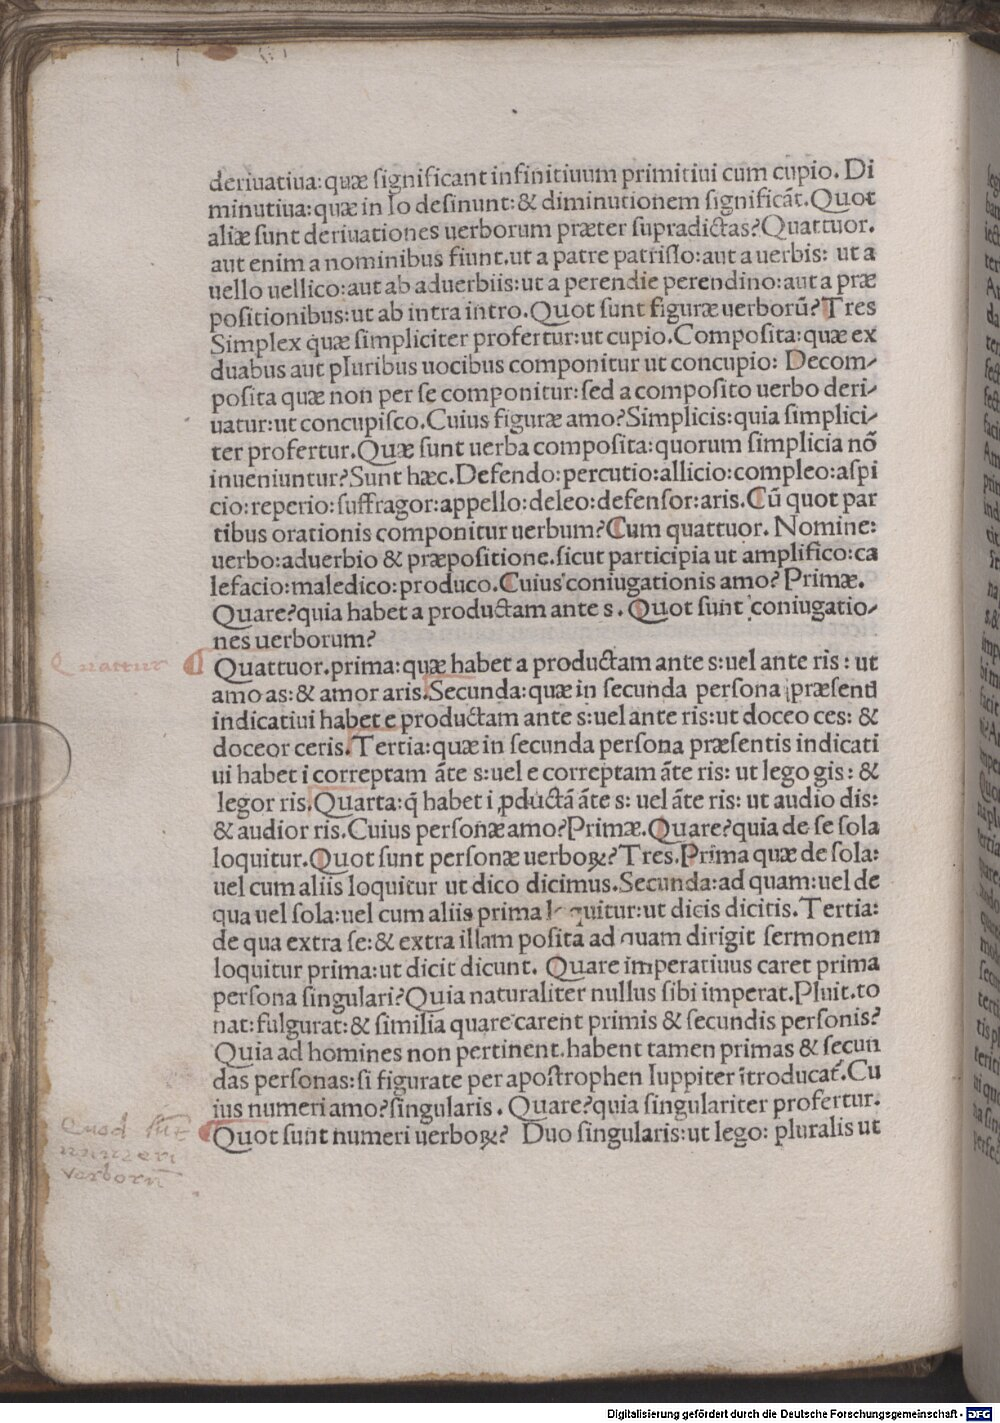 deriuatiua: quæ ſignificant infinitiuum primitiui cum cupio. Di
minutiua: quæ in lo deſinunt: & diminutionem ſignificāt. Quot
aliæ ſunt deriuationes uerborum præter ſupradictas? Quattuor.
aut enim a nominibus fiunt. ut a patre patriſſo: aut a uerbis: ut a
uello uellico: aut ab aduerbiis: ut a perendie perendino: aut a præ
poſitionibus: ut ab intra intro. Quot ſunt figuræ uerborū? Tres
Simplex quæ ſimpliciter profertur: ut cupio. Compoſita: quæ ex
duabus aut pluribus uocibus componitur ut concupio: Decom-
poſita quæ non per ſe componitur: ſed a compoſito uerbo deri-
uatur: ut concupiſco. Cuius figuræ amo? Simplicis: quia ſimplici-
ter profertur. Quæ ſunt uerba compoſita: quorum ſimplicia nō
inueniuntur? Sunt hæc. Defendo: percutio: allicio: compleo: aſpi
cio: reperio: ſuffragor: appello: deleo: defenſor: aris. Cū quot par
tibus orationis componitur uerbum? Cum quattuor. Nomine:
uerbo: aduerbio & præpoſitione. ſicut participia ut amplifico: ca
lefacio: maledico: produco. Cuius coniugationis amo? Primæ.
Quare? quia habet a productam ante s. Quot ſunt coniugatio-
nes uerborum?
Quattuor
Quattuor. prima: quæ habet a productam ante s: uel ante ris: ut
amo as: & amor aris. Secunda: quæ in ſecunda perſona præſenti
indicatiui habet e productam ante s: uel ante ris: ut doceo ces: &
doceor ceris. Tertia: quæ in ſecunda perſona præſentis indicati
ui habet i correptam āte s: uel e correptam āte ris: ut lego gis: &
legor ris. Quarta: q̄ habet i ꝓductā āte s: uel āte ris: ut audio dis:
& audior ris. Cuius perſonæ amo? Primæ. Quare? quia de ſe ſola
loquitur. Quot ſunt perſonæ uerboꝝ? Tres. Prima quæ de ſola:
uel cum aliis loquitur ut dico dicimus. Secunda: ad quam: uel de
qua uel ſola: uel cum aliis prima loquitur: ut dicis dicitis. Tertia:
de qua extra ſe: & extra illam poſita ad quam dirigit ſermonem
loquitur prima: ut dicit dicunt. Quare imperatiuus caret prima
perſona ſingulari? Quia naturaliter nullus ſibi imperat. Pluit. to
nat: fulgurat: & ſimilia quare carent primis & ſecundis perſonis?
Quia ad homines non pertinent. habent tamen primas & ſecun
das perſonas: ſi figurate per apoſtrophen Iuppiter ītroducat̄. Cu
ius numeri amo? ſingularis. Quare? quia ſingulariter profertur.
Quot ſunt numeri uerboꝝ? Duo ſingularis: ut lego: pluralis ut
Quod ſūt
numeri
verborū
Digitalisierung gefördert durch die Deutsche Forschungsgemeinschaft - DFG